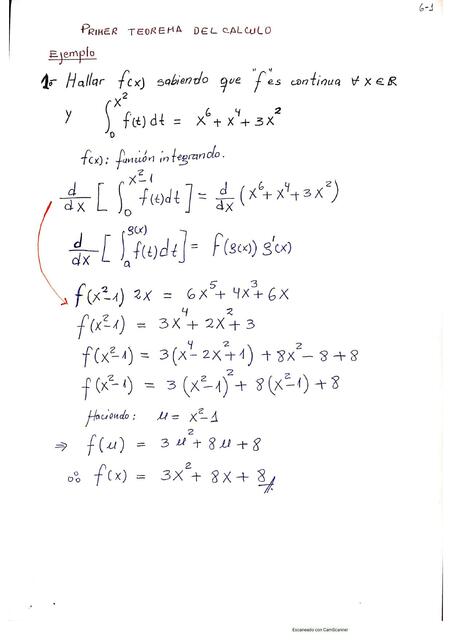 6-1
PRIMER TEOREMA DEL CALCULO
Ejemplo
1º Hallar f(x) sabiendo que "f" es continua ∀ x∈R
y ∫₀^{x²} f(t) dt = x⁶ + x⁴ + 3x²
f(x): función integrando.
d/dx [ ∫₀^{x²-1} f(t)dt ] = d/dx (x⁶ + x⁴ + 3x²)
d/dx [ ∫ₐ^{g(x)} f(t)dt ] = f(g(x)) g'(x)
f(x²-1) 2x = 6x⁵ + 4x³ + 6x
f(x²-1) = 3x⁴ + 2x² + 3
f(x²-1) = 3(x⁴ - 2x² + 1) + 8x² - 8 + 8
f(x²-1) = 3(x²-1)² + 8(x²-1) + 8
Haciendo: u = x²-1
⇒ f(u) = 3u² + 8u + 8
∴ f(x) = 3x² + 8x + 8
Escaneado con CamScanner